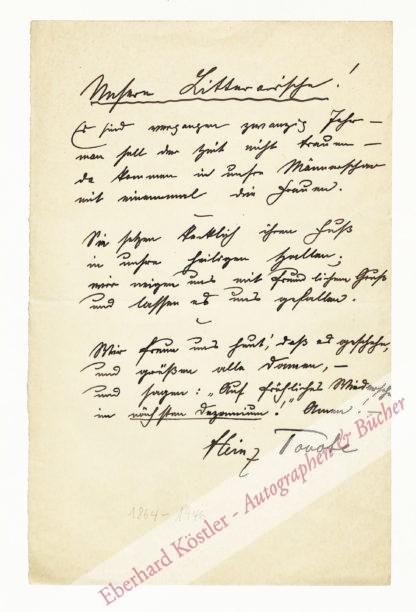 Unsere Litterarische!
Es sind vergangen zwanzig Jahr –
man soll der Zeit nicht trauen –
da kommen in unsre Männerschar
mit einemmal die Frauen.
Sie setzen kecklich ihren Fuß
in unsre heiligen Hallen;
wir neigen uns mit freundlichem Gruß
und lassen es uns gefallen.
Wir freun uns heut', daß es geschehn,
und grüßen alle Damen, –
und sagen: "Auf fröhliches Wiedersehn
im nächsten Dezennium!" Amen! –
Heinz Tovote
1864 – 1946
Eberhard Köstler - Autographen & Bücher